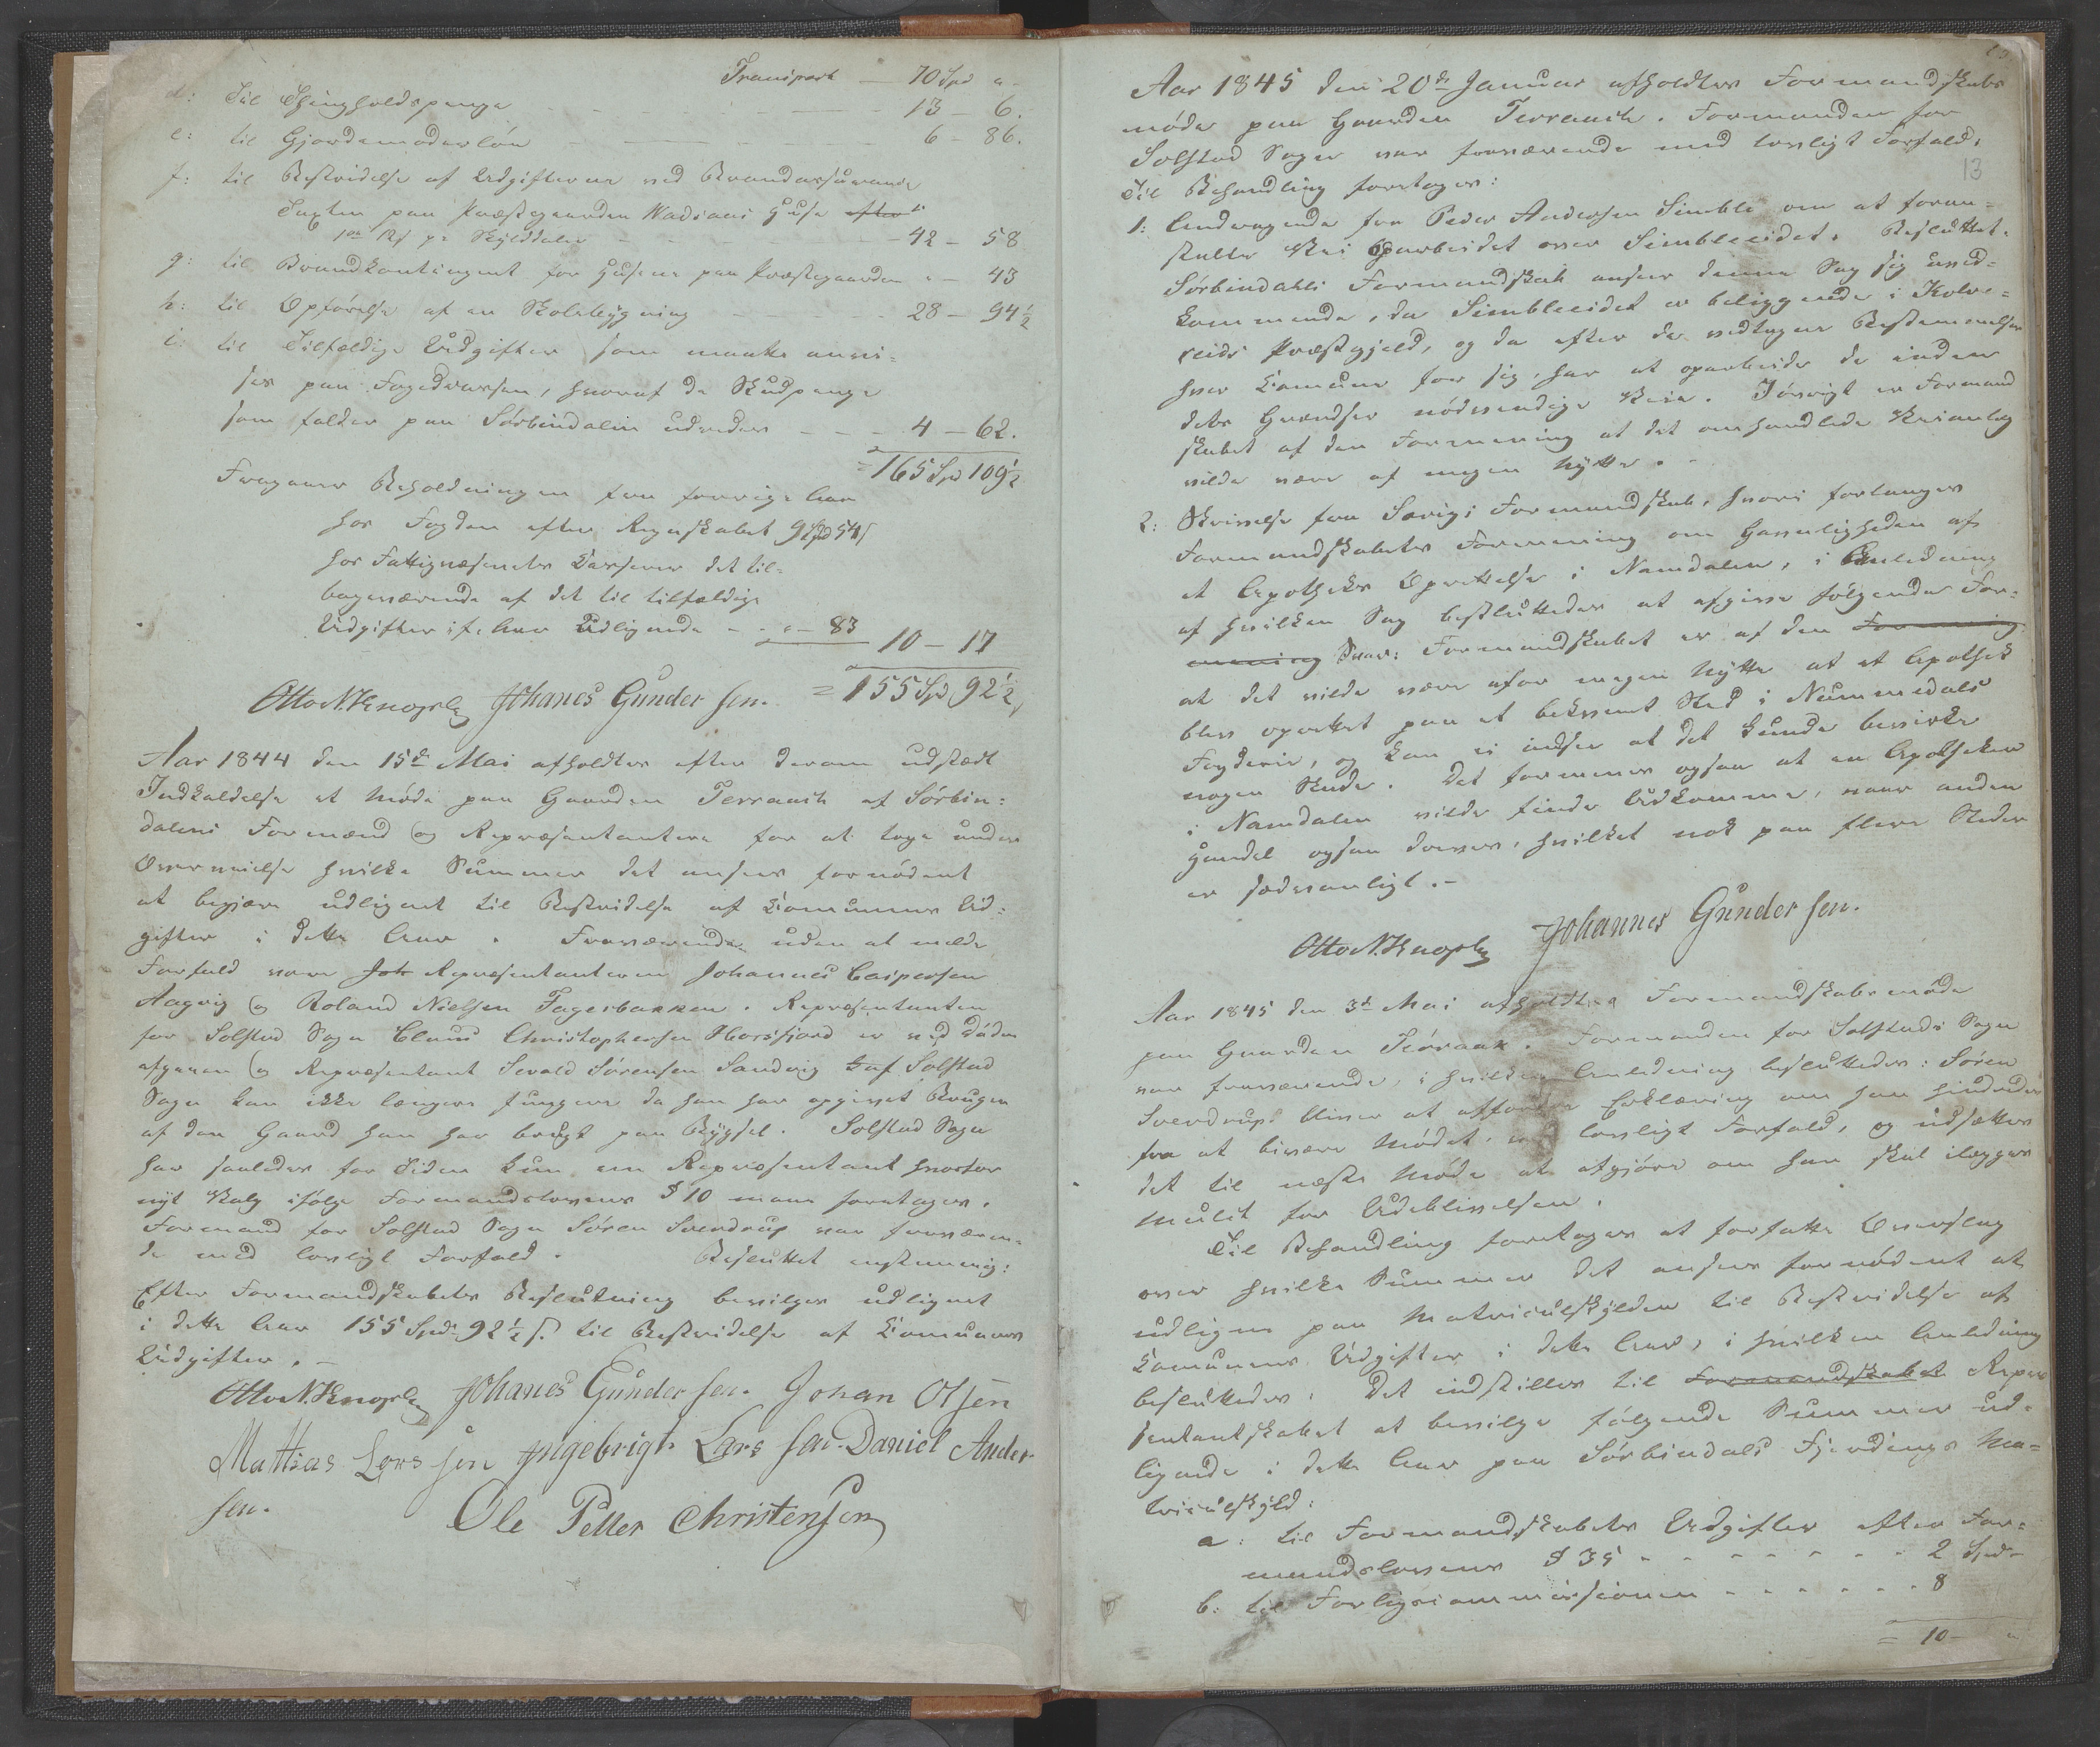 Transport — 70 Spd "-
d: Til Thingholdspenge — 13 – 6.
e: til Gjordemoderløn — 6 - 86.
f: til Bestridelse af Udgifterne ved Brandassurance
Taxten paa Præstegaarden Vadsaas Huse
pr Skylddaler — 42 – 58
g: til Brandkontingent for Husene paa Præstegaarden " – 43
h: til Opførelse af en Skolebygning — 28 – 94½
i: til Tilfældige Udgifter som maatte anvi-
ses paa Fogedcassen, hvoraf de Skudpenge
som falder paa Sørbindalen udredes — 4 – 62.
= 165 Spd 109½
Fragaaer Beholdningen fra forrige Aar
hos Fogden efter Regnskabet 9 Spd 54 s
hos Fattigvæsenets Casserer det til-
bageværende af det til tilfældige
Udgifter i f. Aar Udlignede - - " – 83
10 – 17
= 155 Spd 92½
Otto N. Knoph Johanes Gunder sen.
Aar 1844 den 15de Mai afholdtes efter derom udstædt
Indkaldelse et Møde paa Gaarden Terraack af Sørbin-
dalens Formænd og Repræsentantere for at tage under
Overveielse hvilke Summer det ansees fornødent
at begjære udlignet til Bestridelse af Communens Ud-
gifter i dette Aar. Fraværende uden at melde
Forfald vare Joh Repræsentanterne Johannes Caspersen
Aagvig og Roland Nielsen Fagerbakken. Repræsentanten
for Solstad Sogn Claus Christophersen Horsfjord er ved Døden
afgaaen og Repræsentant Sevald Sørensen Sandvig af Solstad
Sogn kan ikke længere fungere da han har opgivet Brugen
af den Gaard han har brugt paa Bygsel. Solstad Sogn
har saaledes for Tiden kun en Repræsentant hvorfor
nyt Valg ifølge Formandslovens § 10 maa foretages.
Formand for Solstad Sogn Søren Svendrup var fraværen-
de med lovligt Forfald. Besluttet enstemmig:
Efter Formandskabets Beslutning bevilges udlignet
i dette Aar 155 Spd 92½ s. til Bestridelse af Communens
Udgifter. –
Otto N. Knoph Johanes Gunder sen. Johan Olsen
Mattias Lars sen Ingebrigt Lars sen. Daniel Ander-
sen.
Ole Petter Christensen
13
Aar 1845 den 20de Januar afholdtes Formandskabs
møde paa Gaarden Terraack. Formanden for
Solstad Sogn var fraværende med lovligt Forfald.
Til Behandling foretoges:
1: Andragende fra Peder Andersen Simble om at foran-
stalte Vei oparbeidet over Simbleeidet. Besluttet.
Sørbindahls Formandskab anseer denne Sag sig uved-
kommende, da Simbleeidet er beliggende i Kolve-
reids Præstegjeld, og da efter de vedtagne Bestemmelser
hver Comune for sig, har at oparbeide de inden
dets Grændser nødvendige Veie. Iøvrigt er Formand
skabet af den Formening at det omhandlede Veianlæg
vilde være af megen Nytte. –
2: Skrivelse fra Sørvigs Formandskab, hvori forlanges
Formandskabets Formening om Gavnligheden af
et Apotheks Oprettelse i Namdalen, i Anledning
af hvilken Sag besluttedes at afgive følgende For-
mening Svar: Formandskabet er af den Formening
at det vilde være afor megen Nytte at et Apothek
blev oprettet paa et beqvemt Sted i Nummedals
Fogderie, og kan ei indsee at det kunde bevirke
nogen Skade. Det formenes ogsaa at en Apotheker
i Namdalen vilde finde Udkomme, naar anden
Handel ogsaa dreves, hvilket nok paa flere Steder
er sædvanligt. –
Otto N. Knoph Johannes Gunder sen.
Aar 1845 den 3de Mai afholdtes Formandskabsmøde
paa Gaarden Terraak. Formanden for Solstads Sogn
var fraværende, i hvilken Anledning besluttedes: Søren
Svendrup bliver at affordre Erklæring om han hindredes
fra at bivære Mødet, ved lovligt Forfald, og udsættes
det til næste Møde at afgjøre om han skal ilægges
Mulct for Udeblivelsen.
Til Behandling foretoges at forfatte Overslag
over hvilke Summer det ansees fornødent at
udligne paa Matriculskylden til Bestridelse af
Comunens Udgifter i dette Aar, i hvilken Anledning
besluttedes: Det indstilles til Formandskabet Repræ
sentantskabet at bevilge følgende Summer ud-
lignede i dette Aar paa Sørbindals Fjerdings Ma-
triculskyld:
a: til Formandskabets Udgifter efter For-
mandslovens § 35 - - - - - - - 2 Spd -
b: til Forligscommissionen - - - - - - 8
= 10 – "